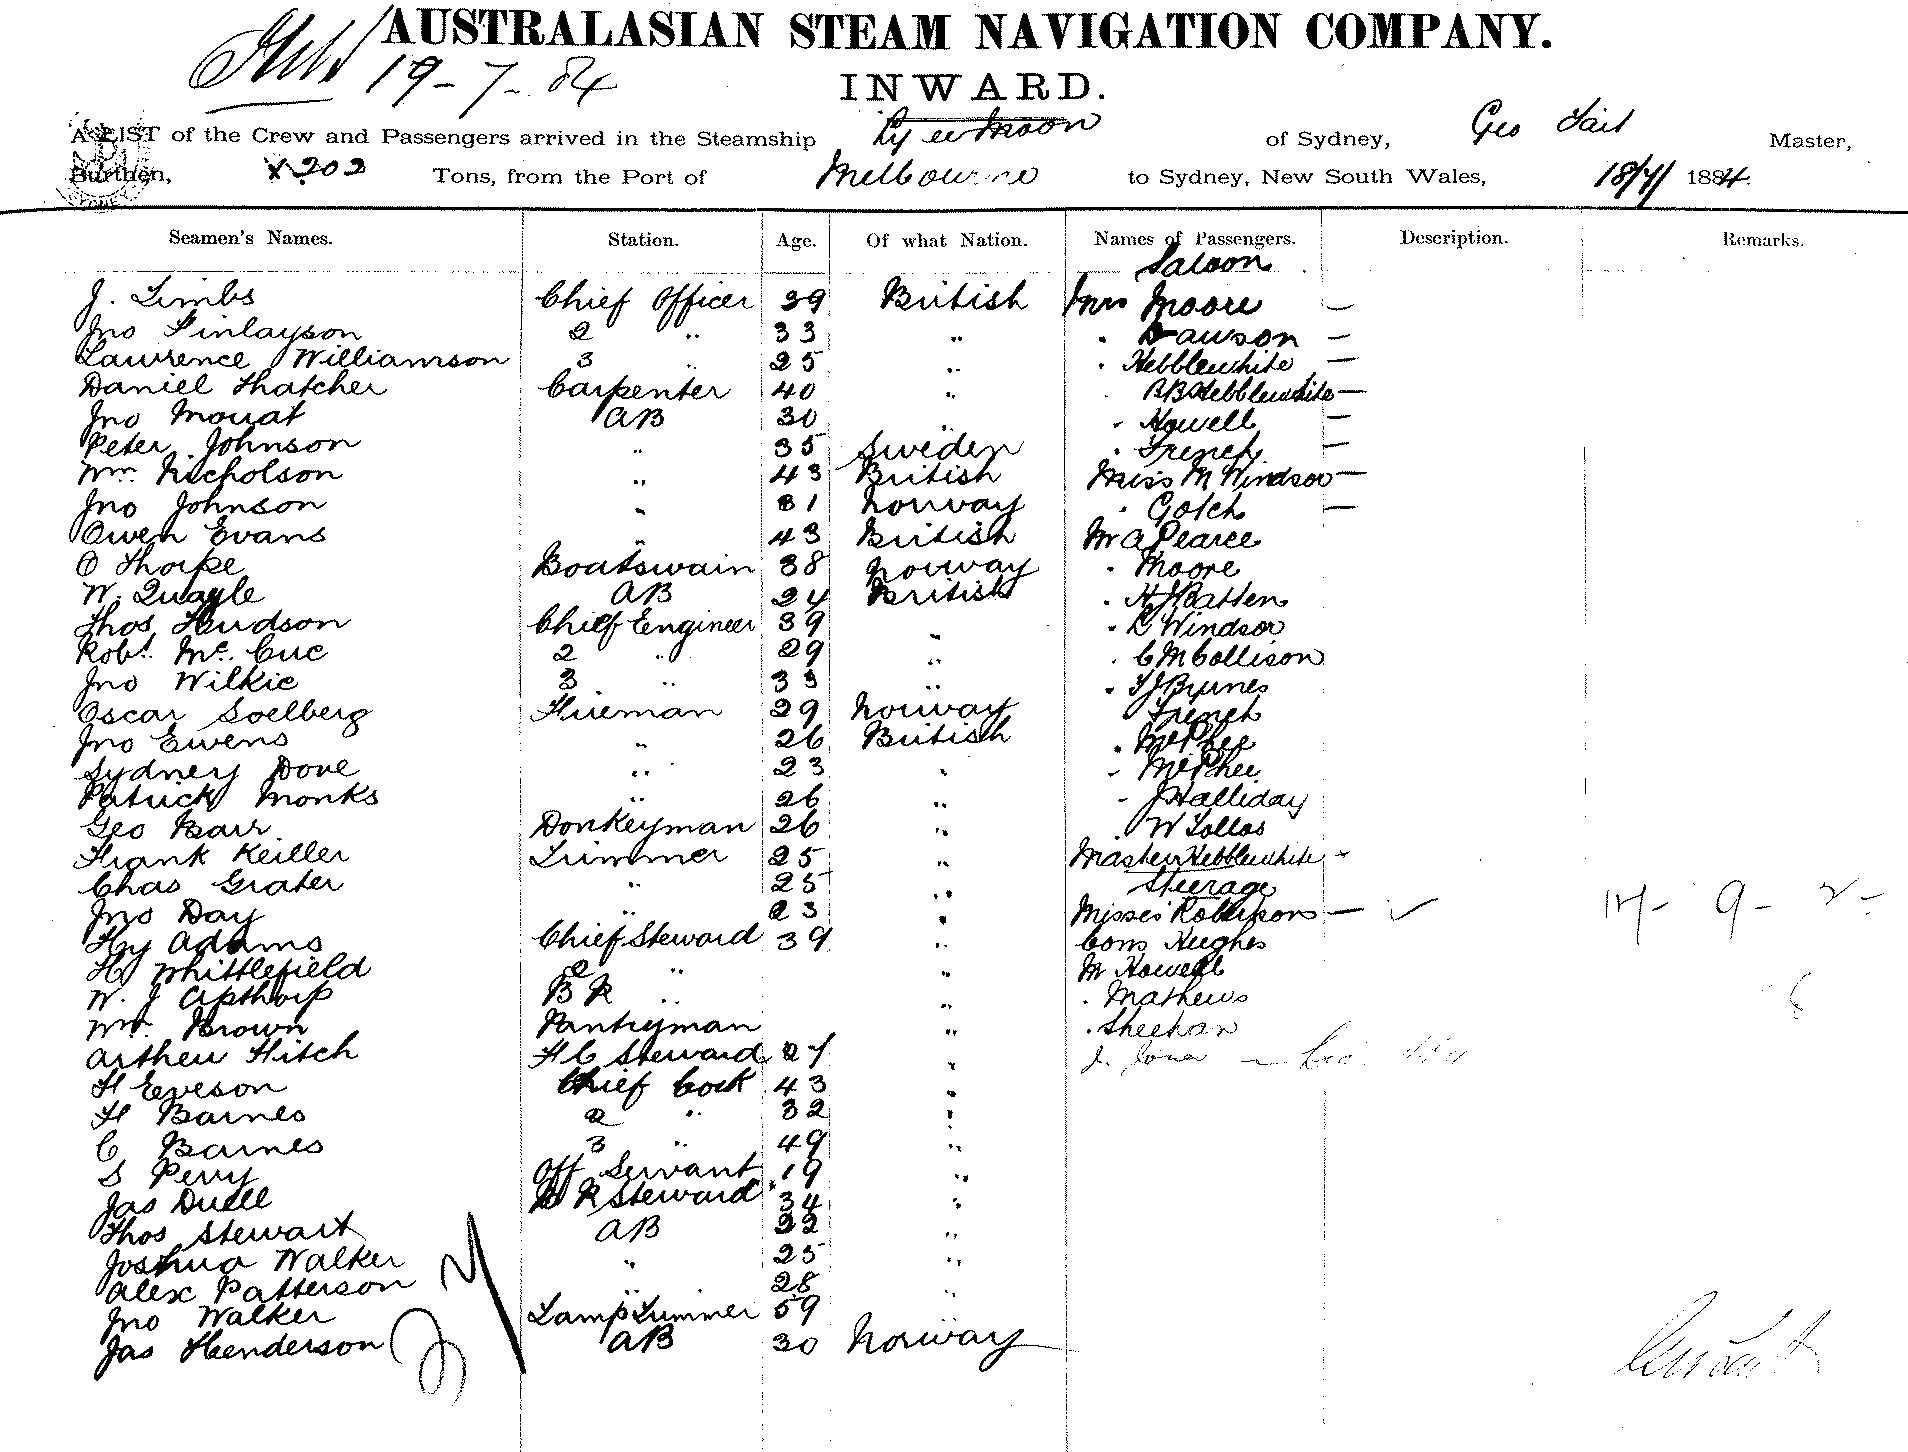 AUSTRALASIAN STEAM NAVIGATION COMPANY.
19-7-84
INWARD.
A LIST of the Crew and Passengers arrived in the Steamship Ly ee Moon of Sydney, Geo Tait Master,
Burthen, 1202 Tons, from the Port of Melbourne to Sydney, New South Wales, 18/7/ 1884.
Seamen's Names. Station. Age. Of what Nation. Names of Passengers. Description. Remarks.
Saloon
J. Timbs Chief Officer 39 British Mrs Moore —
Jno Finlayson 2 " 33 " " Dawson —
Lawrence Williamson 3 " 25 " " Hebblewhite —
Daniel Thatcher Carpenter 40 " BB Hebblewhite —
Jno Mouat AB 30 " " Howell —
Peter Johnson " 35 Sweden " French —
Wm. Nicholson " 43 British Miss M Windsor —
Jno Johnson " 31 Norway " Gotch —
Owen Evans " 43 British Mr A Pearce
O Thorpe Boatswain 38 Norway " Moore
W. Quayle AB 24 British " H J Batten
Thos Hudson Chief Engineer 39 " " Windsor
Robt. Mc. Cue 2 " 29 " " C M Collison
Jno Wilkie 3 " 33 " " T J Byrnes
Oscar Soelberg Fireman 29 Norway " French
Jno Ewens " 26 British " McPhee
Sydney Dove " 23 " " McPhee
Patrick Monks " 26 " " J Halliday
Geo Barr Donkeyman 26 " " W Lollos
Frank Keiller Trimmer 25 " Master Hebblewhite
Chas Grater " 25 " Steerage
Jno Day " 23 " Misses Robertson —
Hy Adams Chief Steward 39 " Cons Hughes
H Whittlefield 2 " " M Howell
W. J Apthorp B R " " " Mathews
Wm. Brown Pantryman " " Sheehan
Arthur Hitch F C Steward 27 " J. Jones
H Eveson Chief Cook 43 "
H Barnes 2 " 32 "
C Barnes 3 " 49 "
S Perry Off Servant 19 "
Jas Duell B R Steward 34 "
Thos Stewart AB 22 "
Joshua Walker " 25 "
Alex Patterson " 28 "
Jno Walker Lamp Trimmer 59
Jas Henderson AB 30 Norway